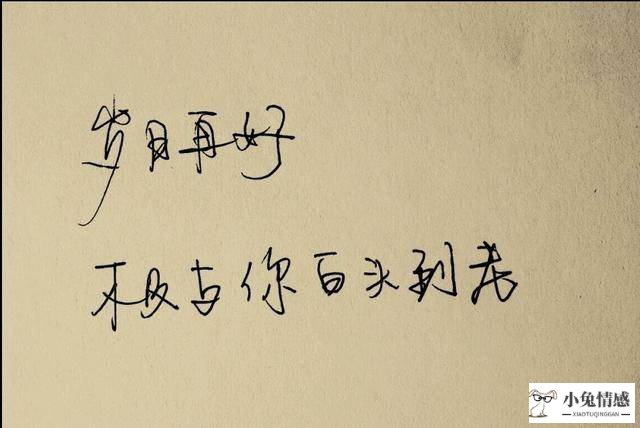 岁月再好
不及与你白头到老
小兔情感
XIAOTUQINGGAN